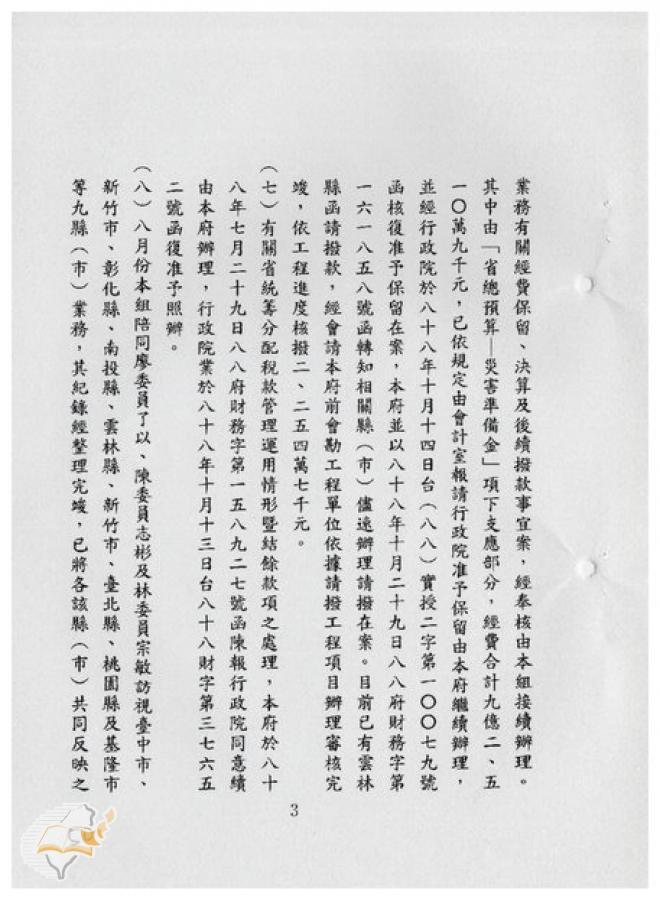 業務有關經費保留、決算及後續撥款事宜案，經奉核由本組接續辦理。
其中由「省總預算—災害準備金」項下支應部分，經費合計九億二、五
一〇萬九千元，已依規定由會計室報請行政院准予保留由本府繼續辦理，
並經行政院於八十八年十月十四日台（八八）實授二字第一〇〇七九號
函核復准予保留在案，本府並以八十八年十月二十九日八八府財務字第
一六一八五八號函轉知相關縣（市）儘速辦理請撥在案。目前已有雲林
縣函請撥款，經會請本府前會勘工程單位依據請撥工程項目辦理審核完
竣，依工程進度核撥二、二五四萬七千元。
（七）有關省統籌分配稅款管理運用情形暨結餘款項之處理，本府於八十
八年七月二十九日八八府財務字第一五八九二七號函陳報行政院同意續
由本府辦理，行政院業於八十八年十月十三日台八十八財字第三七六五
二號函復准予照辦。
（八）八月份本組陪同廖委員了以、陳委員志彬及林委員宗敏訪視臺中市、
新竹市、彰化縣、南投縣、雲林縣、新竹市、臺北縣、桃園縣及基隆市
等九縣（市）業務，其紀錄經整理完竣，已將各該縣（市）共同反映之
3